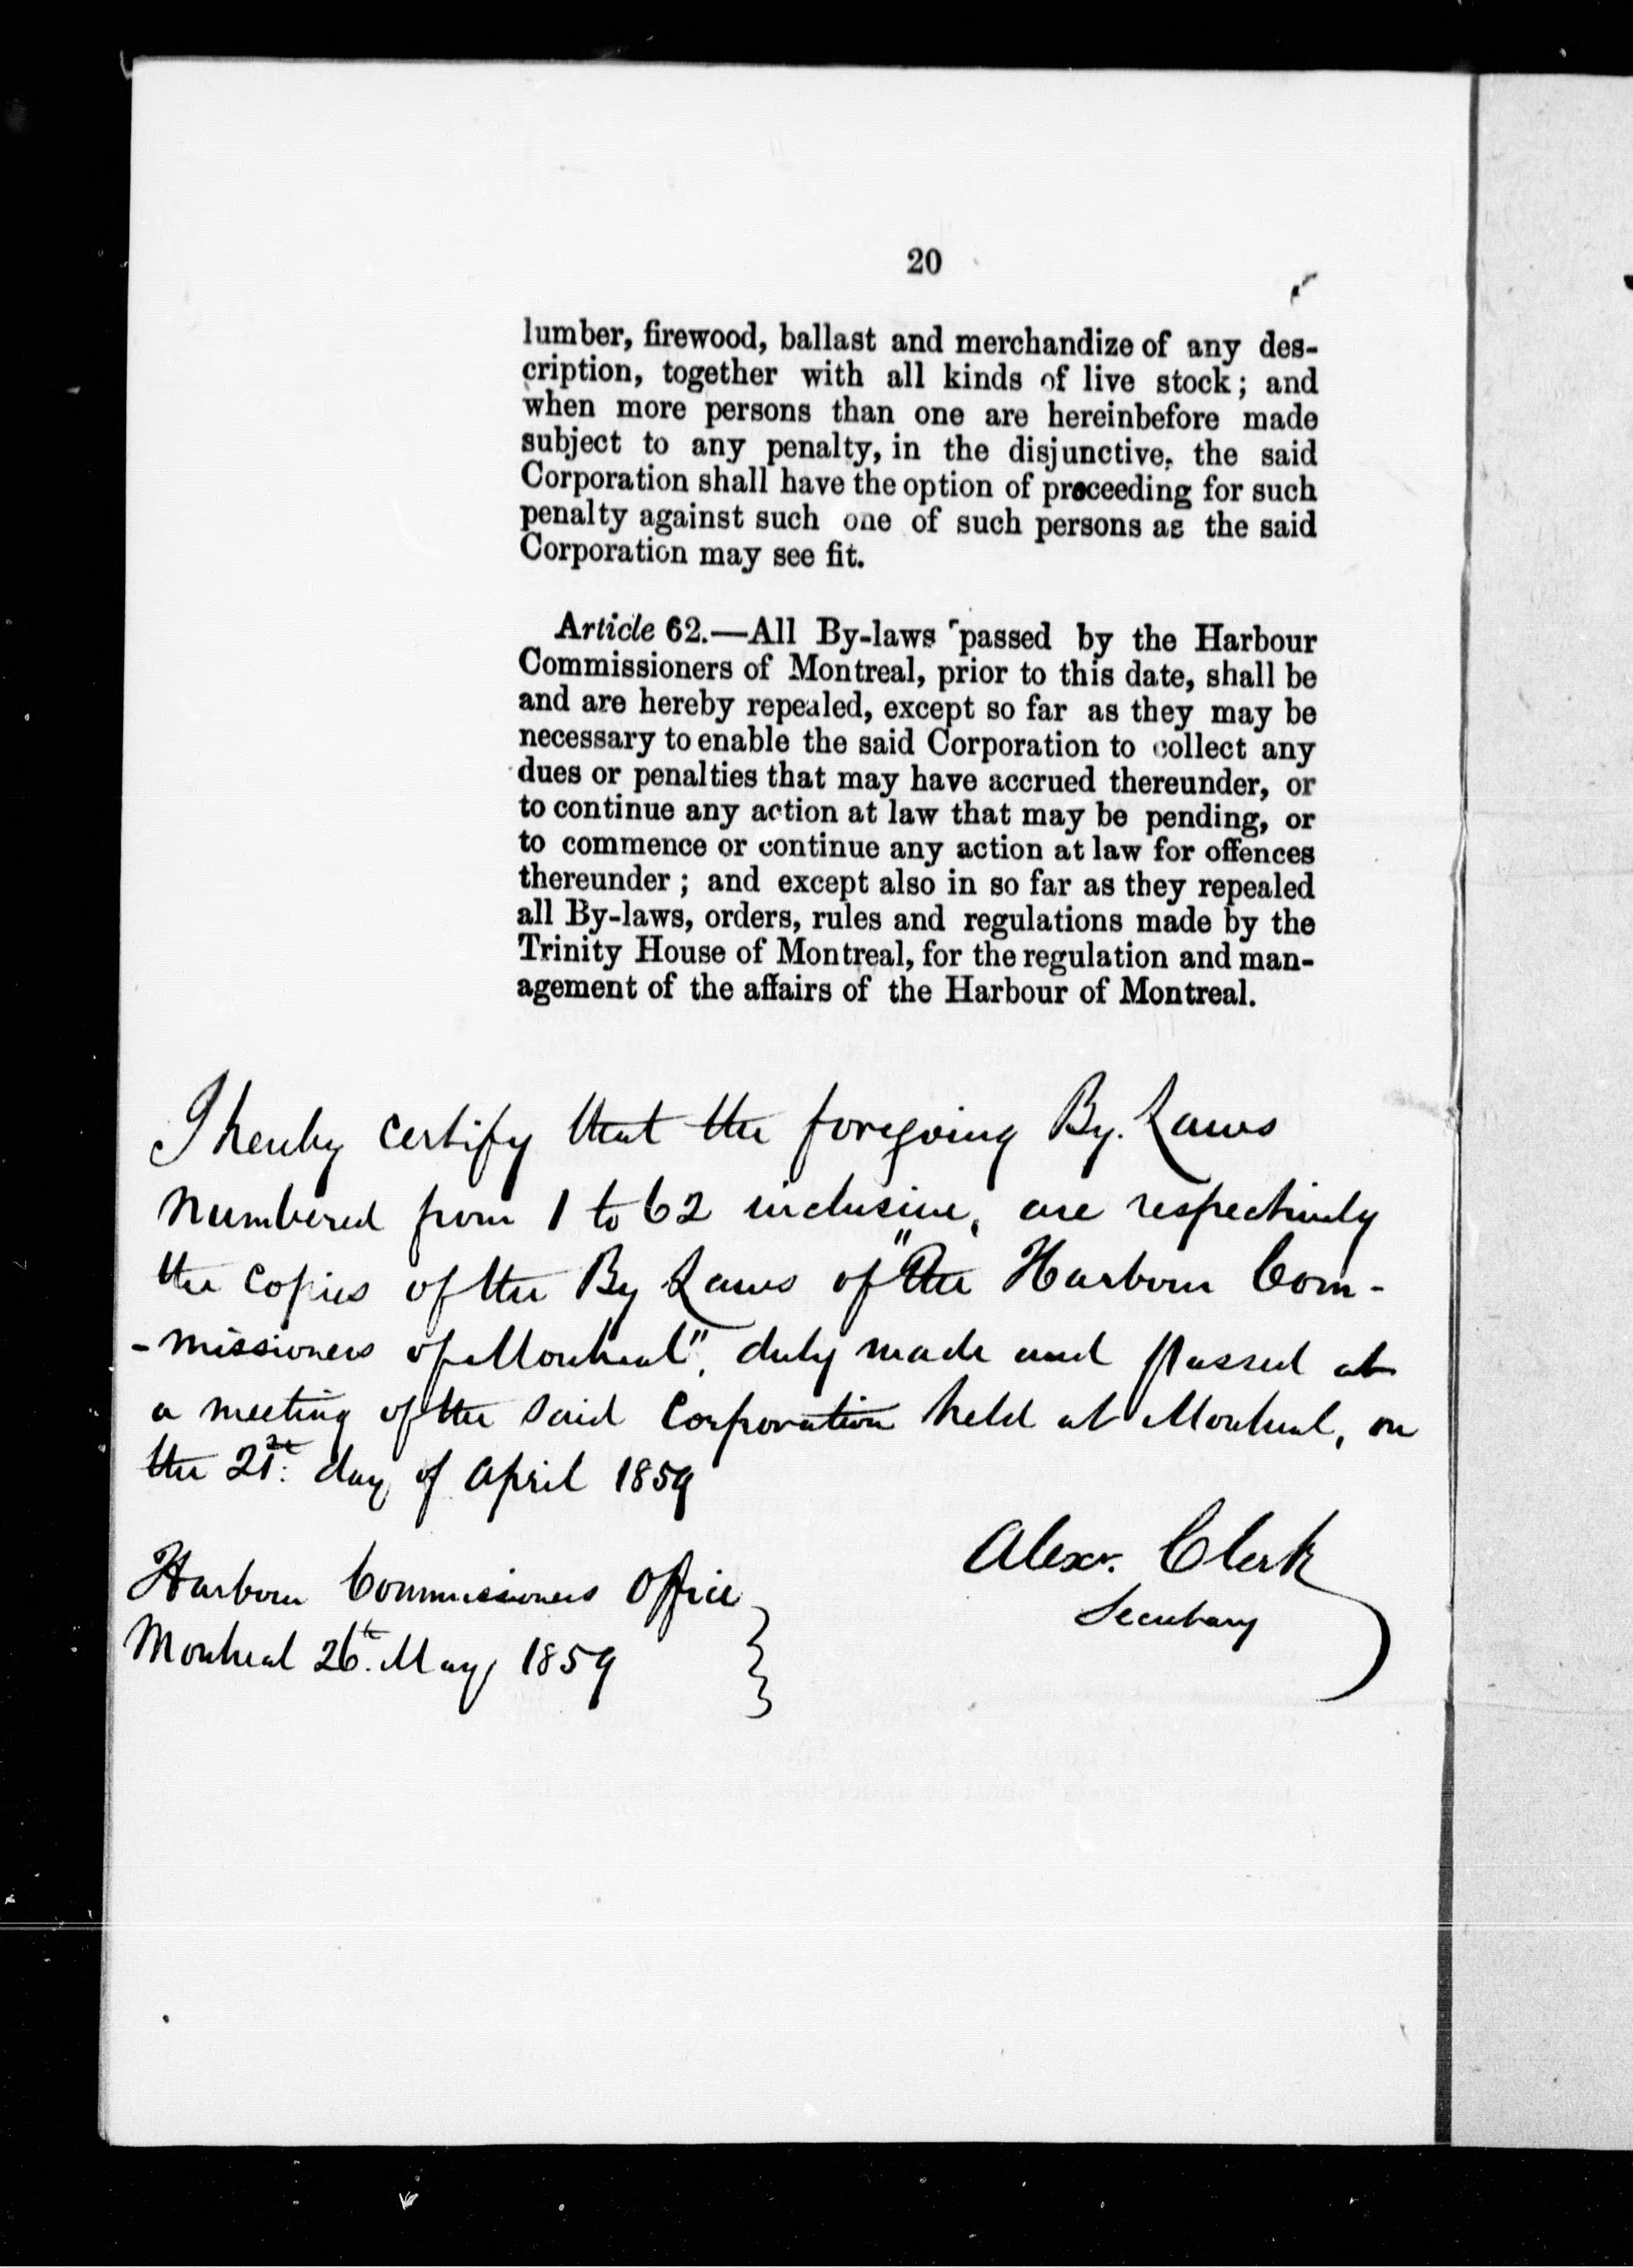 20
lumber, firewood, ballast and merchandize of any des-
cription, together with all kinds of live stock; and
when more persons than one are hereinbefore made
subject to any penalty, in the disjunctive, the said
Corporation shall have the option of proceeding for such
penalty against such one of such persons as the said
Corporation may see fit.
Article 62.—All By-laws passed by the Harbour
Commissioners of Montreal, prior to this date, shall be
and are hereby repealed, except so far as they may be
necessary to enable the said Corporation to collect any
dues or penalties that may have accrued thereunder, or
to continue any action at law that may be pending, or
to commence or continue any action at law for offences
thereunder; and except also in so far as they repealed
all By-laws, orders, rules and regulations made by the
Trinity House of Montreal, for the regulation and man-
agement of the affairs of the Harbour of Montreal.
I hereby certify that the foregoing By. Laws
numbered from 1 to 62 inclusive, are respectively
the copies of the By Laws of "The Harbour Com-
-missioners of Montreal", duly made and passed at
a meeting of the said Corporation held at Montreal, on
the 21st. day of April 1859
Alexr. Clerk
Secretary
Harbour Commissioners Office
Montreal 26th. May 1859